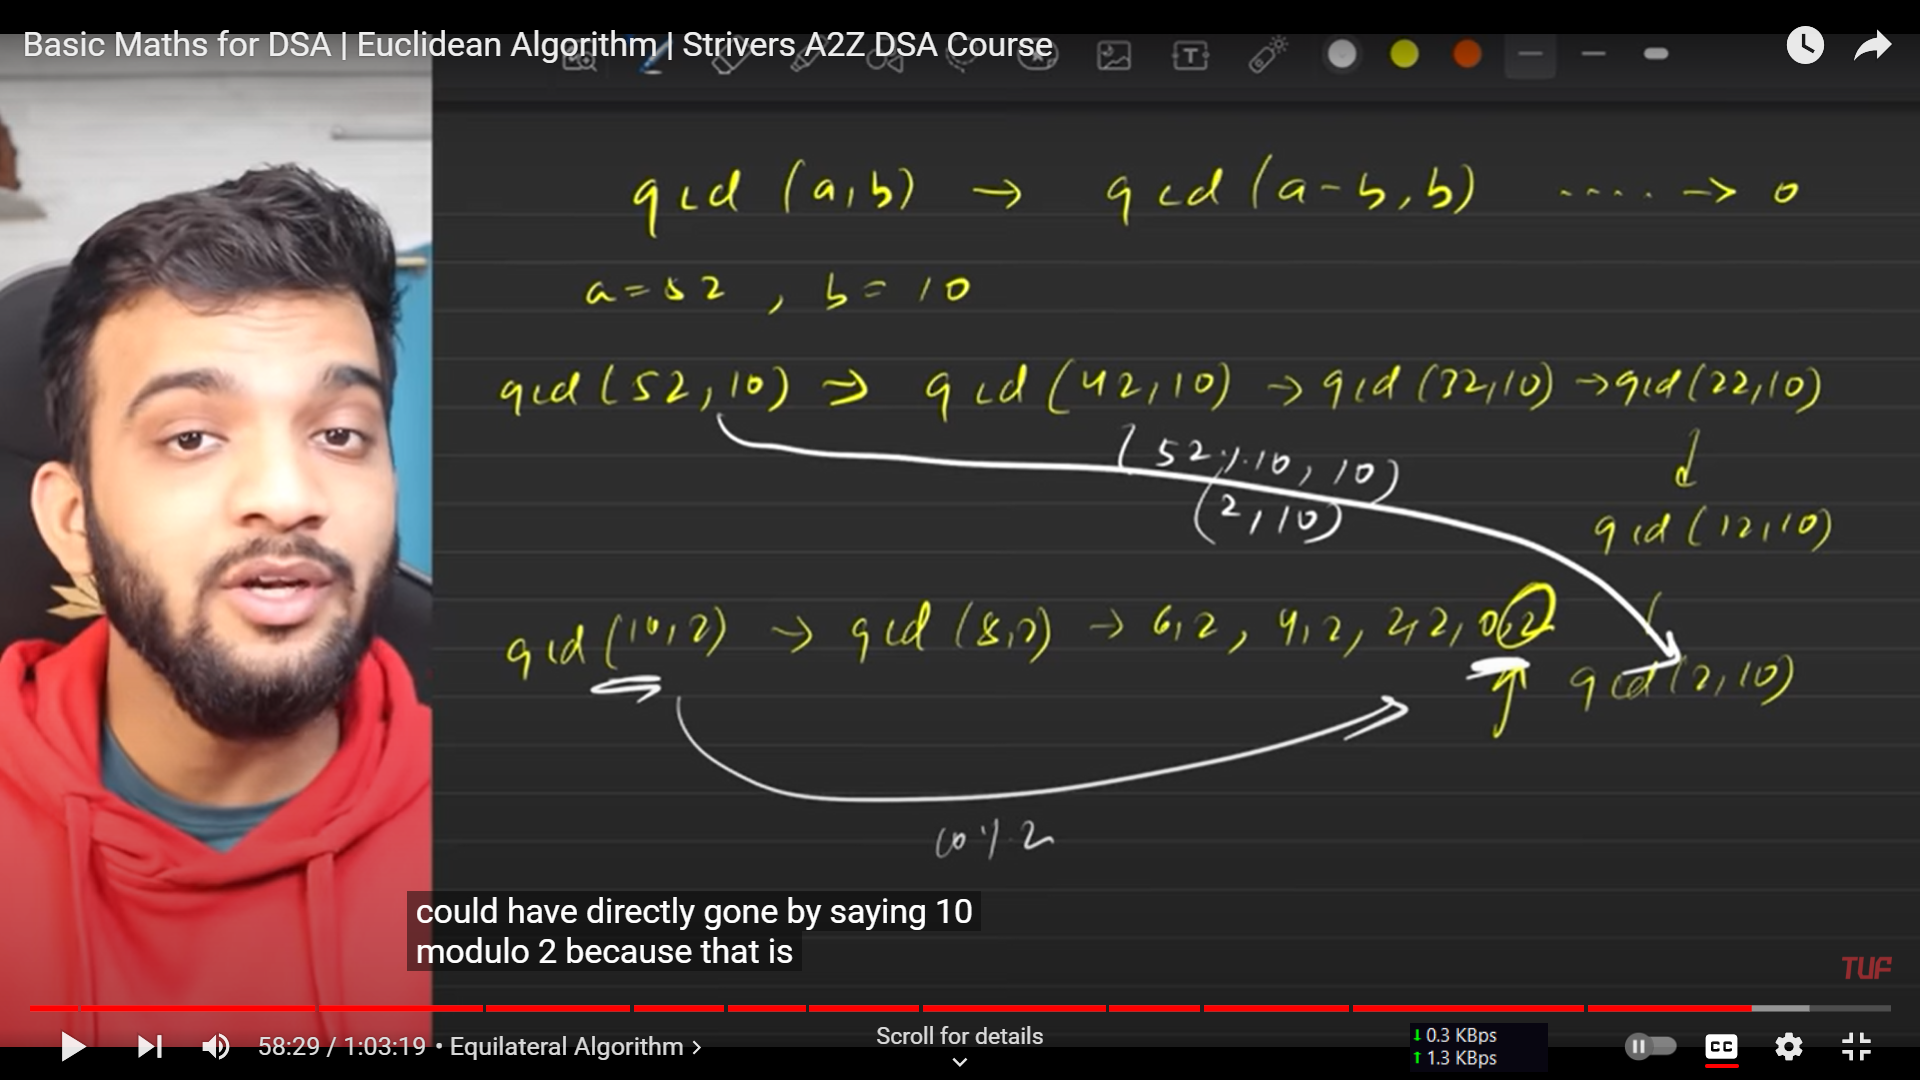 Basic Maths for DSA | Euclidean Algorithm | Strivers A2Z DSA Course
gcd (a,b) → gcd (a-b, b) ..... → 0
a=52 , b= 10
gcd (52,10) => gcd (42,10) → gcd (32,10) → gcd (22,10)
(52%10, 10)
(2,10)
gcd (12,10)
gcd (10,2) → gcd (8,2) → 6,2, 4,2, 2,2, 0,2
gcd (2,10)
10%2
could have directly gone by saying 10
modulo 2 because that is
TUF
58:29 / 1:03:19 • Equilateral Algorithm >
Scroll for details
↓ 0.3 KBps
↑ 1.3 KBps
CC